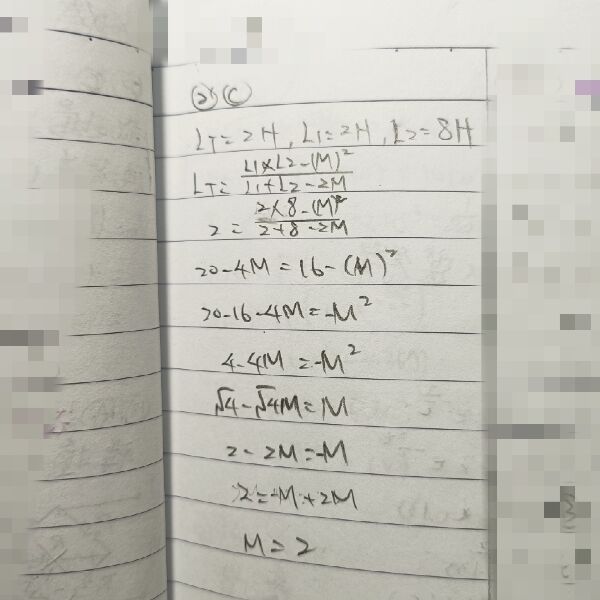 ② ⓒ
LT = 2H , L1 = 2H , L2 = 8H
LT = L1×L2-(M)² / L1+L2-2M
2 = 2×8-(M)² / 2+8-2M
20-4M = 16-(M)²
20-16-4M = -M²
4-4M = -M²
√4-√4M = M
2-2M = -M
2 = -M+2M
M = 2